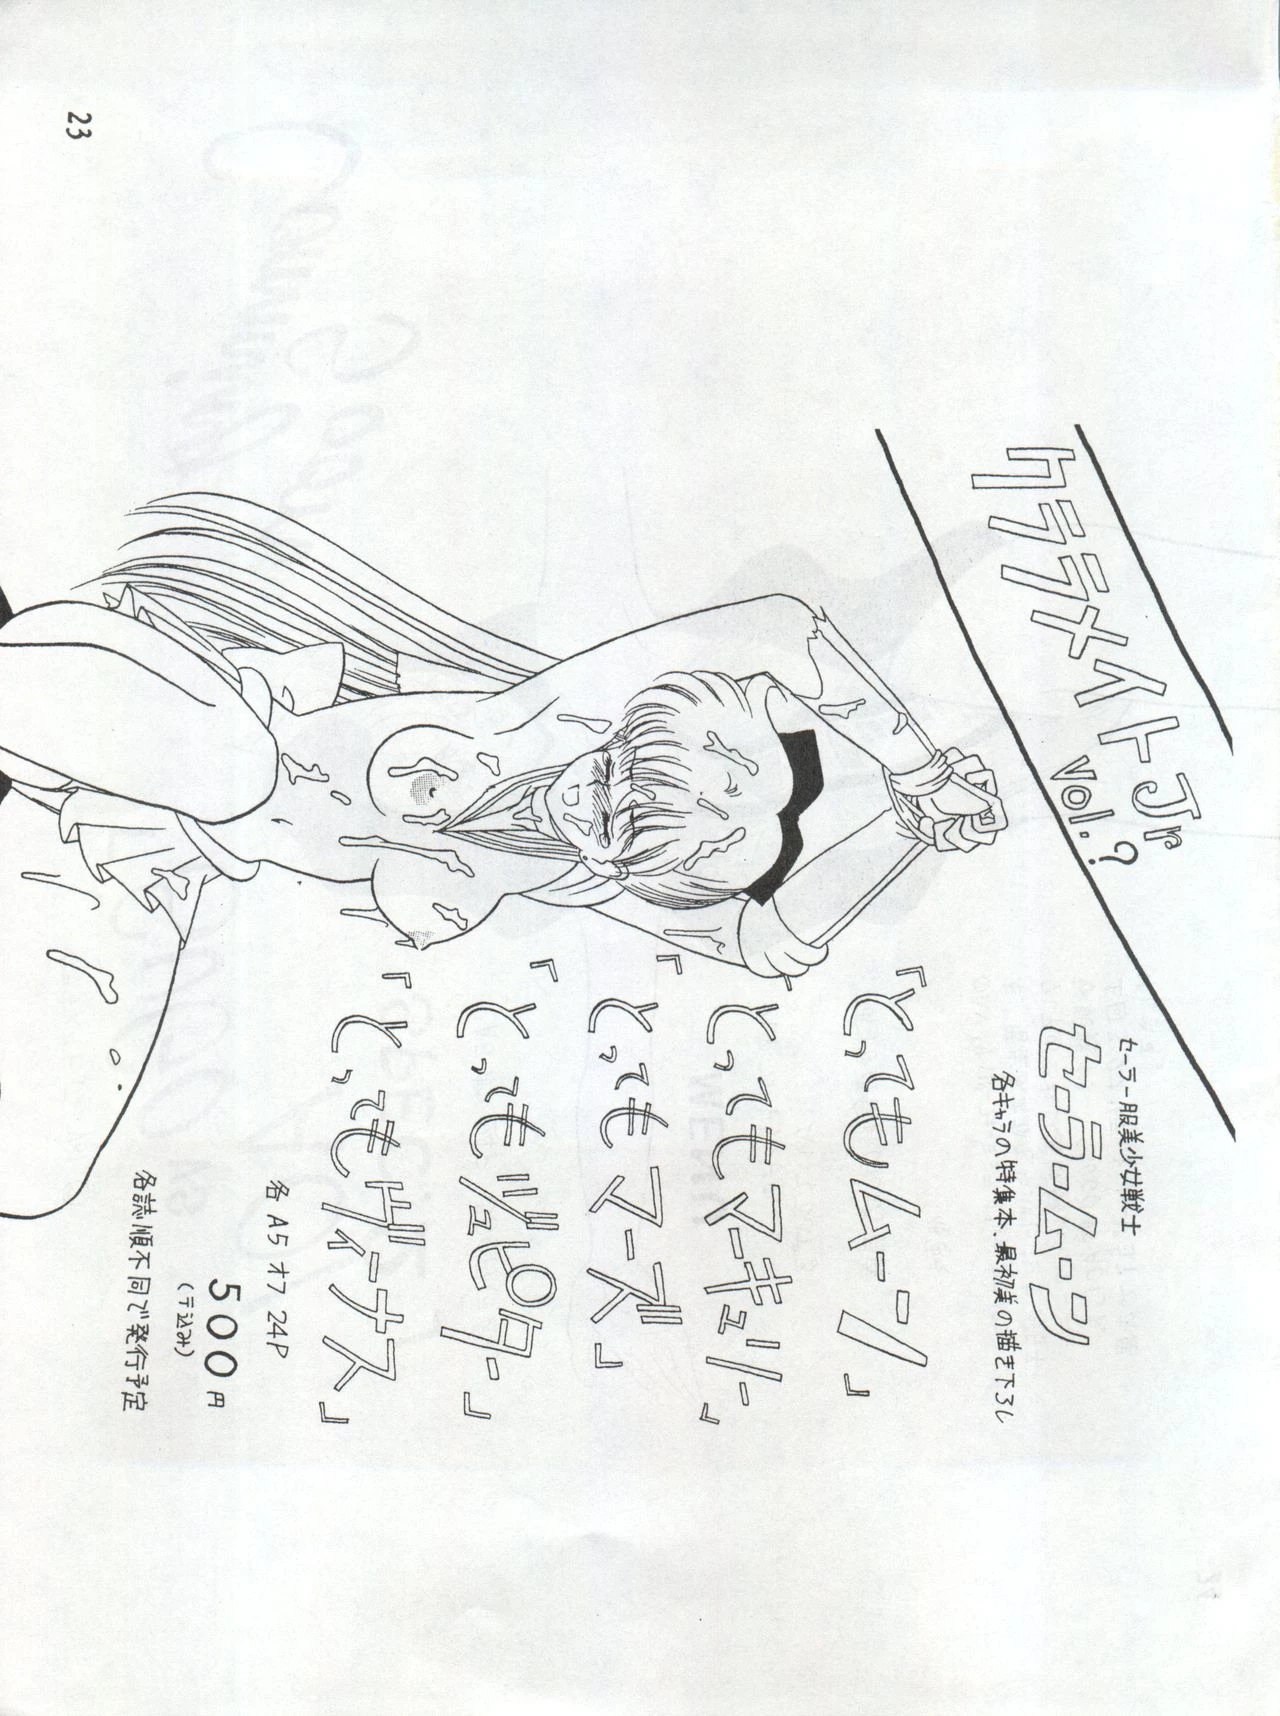 クララメイトJr
vol.?
セーラー服美少女戦士
セーラームーン
各キャラの特集本、最初美の描き下ろし
「とってもムーン」
「とってもマーキュリー」
「とってもマーズ」
「とってもジュピター」
「とってもヴィーナス」
各A5オフ24P
500円
(〒込み)
各誌順不同で発行予定
23